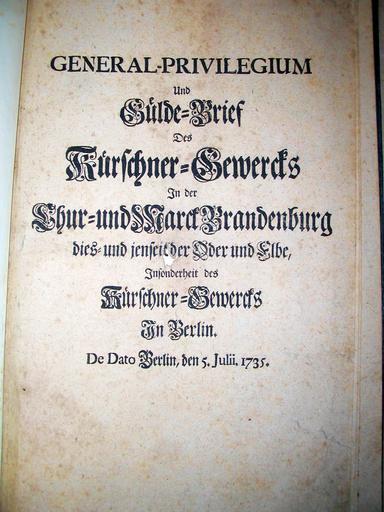 GENERAL-PRIVILEGIUM
Und
Gülde-Brief
Des
Kürschner-Gewercks
In der
Chur- und Marck Brandenburg
dies- und jenseit der Oder und Elbe,
Insonderheit des
Kürschner-Gewercks
In Berlin.
De Dato Berlin, den 5. Julii. 1735.